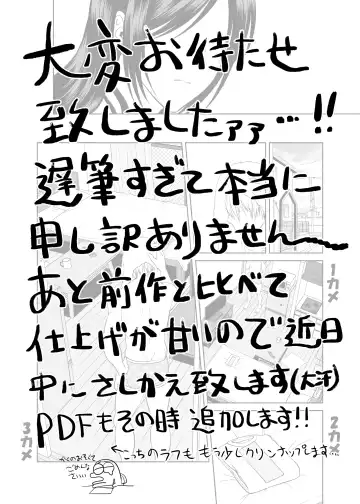 大変お待たせ
致しましたァァ…!!
遅筆すぎて本当に
申し訳ありません〜
あと前作と比べて
仕上げが甘いので近日
中にさしかえ致します(大汗)
PDFもその時追加します!!
←こっちのラフももう少しクリンナップします
1カメ
2カメ
3カメ